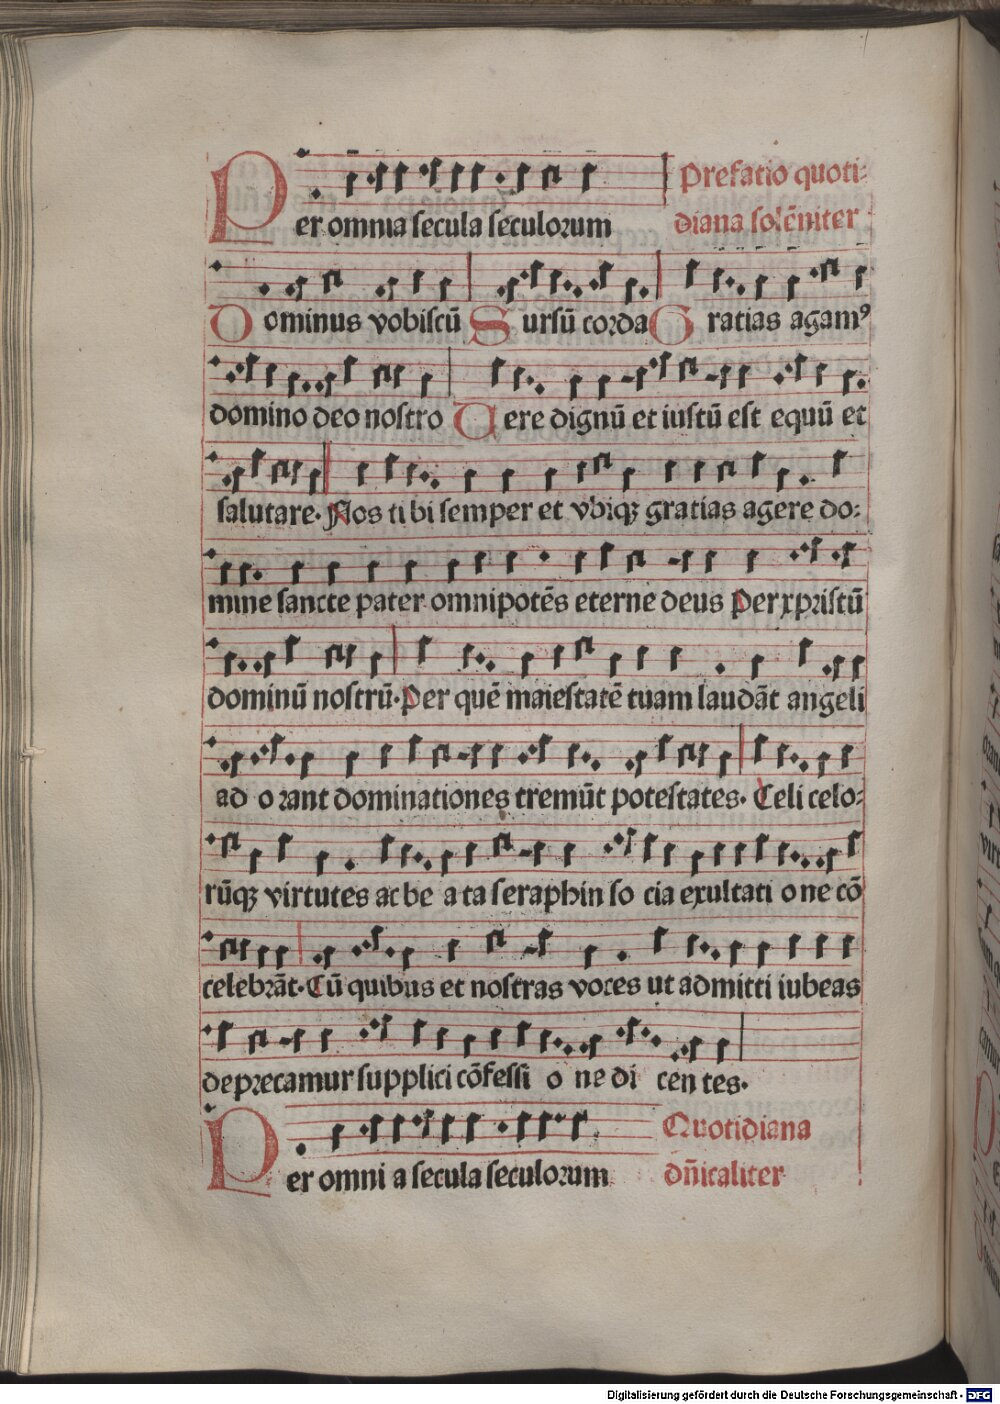 Prefatio quoti-
Per omnia secula seculorum
diana solẽniter
Dominus vobiscũ Sursũ corda Gratias agamꝰ
domino deo nostro Vere dignũ et iustũ est equũ et
salutare. Nos tibi semper et vbiqꝫ gratias agere do-
mine sancte pater omnipotẽs eterne deus Per xpristũ
dominũ nostrũ. Per quẽ maiestatẽ tuam laudãt angeli
ad orant dominationes tremũt potestates. Celi celo-
rũqꝫ virtutes ac be a ta seraphin so cia exultati o ne cõ
celebrãt. Cũ quibus et nostras voces ut admitti iubeas
deprecamur supplici cõfessi o ne di cen tes.
Quotidiana
Per omni a secula seculorum
dñicaliter
Digitalisierung gefördert durch die Deutsche Forschungsgemeinschaft - DFG